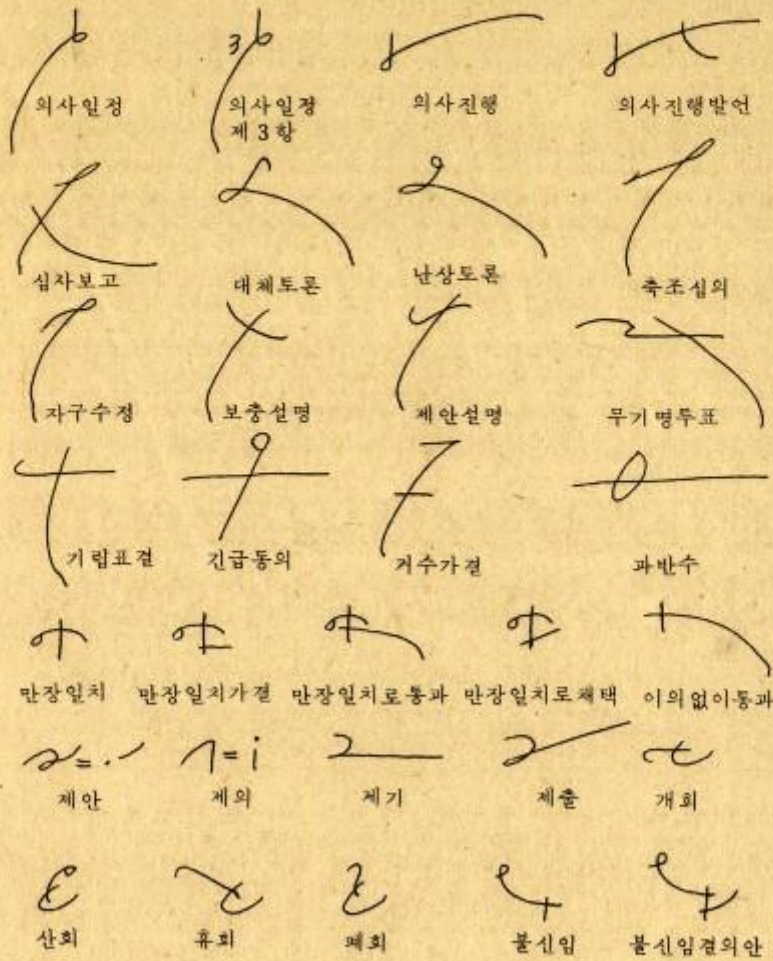 의사일정 의사일정 의사진행 의사진행발언
제3항
심사보고 대체토론 난상토론 축조심의
자구수정 보충설명 제안설명 무기명투표
기립표결 긴급동의 거수가결 과반수
만장일치 만장일치가결 만장일치로통과 만장일치로채택 이의없이통과
제안 제의 제기 제출 개회
산회 휴회 폐회 불신임 불신임결의안